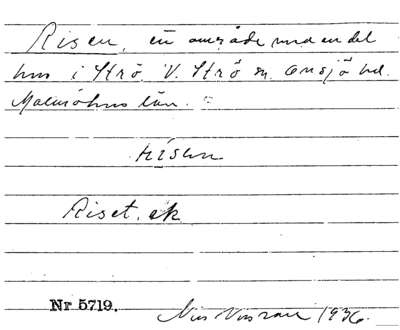 Risen, en område med en del
hus i Strö. V. Strö sn. Onsjö hd.
Malmöhus län.
risen
Riset, ek
Nr 5719.
Nils 1936.